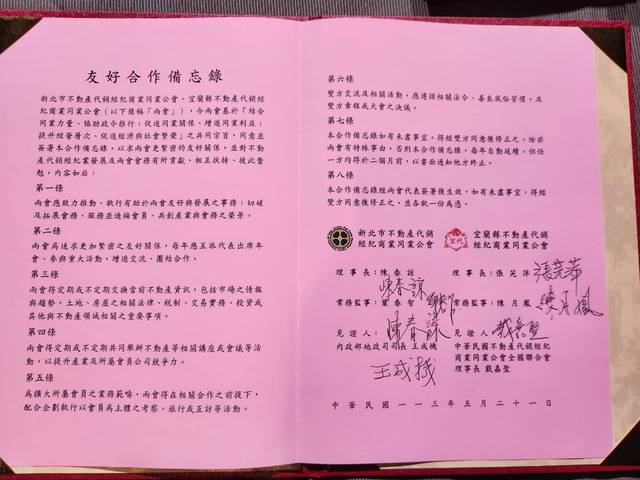 友好合作備忘錄
新北市不動產代銷經紀商業同業公會、宜蘭縣不動產代銷經
紀商業同業公會(以下簡稱「兩會」),今兩會基於「結合
同業力量、協助政令推行;促進同業關係、增進同業利益;
提升經營層次、促進經濟與社會繁榮」之共同宗旨,同意並
簽署本合作備忘錄,以求兩會更緊密的友好關係,並對不動
產代銷經紀業發展及兩會會務有所貢獻,相互扶持、彼此奮
勉,內容如后:
第一條
兩會應致力推動、執行有助於兩會友好與發展之事務;切磋
及拓展會務、服務並造福會員、共創產業與會務之榮景。
第二條
兩會為追求更加緊密之友好關係,每年應互派代表出席年
會、參與重大活動,增進交流、團結合作。
第三條
兩會得定期或不定期交換當前不動產資訊,包括市場之情報
與趨勢,土地、房屋之相關法律、稅制、交易實務、投資或
其他與不動產領域相關之重要事項。
第四條
兩會得定期或不定期共同舉辦不動產等相關講座或會議等活
動,以提升產業及所屬會員公司競爭力。
第五條
為擴大所屬會員之業務範疇,兩會得在相關合作之前提下,
配合企劃執行以會員為主體之考察、旅行或互訪等活動。
第六條
雙方交流及相關活動,應遵循相關法令、善良風俗習慣,及
雙方章程或大會之決議。
第七條
本合作備忘錄如有未盡事宜,得經雙方同意後修正之。除非
兩會有特殊事由,否則本合作備忘錄,每年自動延續。但任
一方均得於二個月前,以書面通知他方終止。
第八條
本合作備忘錄經兩會代表簽署後生效,如有未盡事宜,得經
雙方同意後修正之,並各執一份為憑。
新北市不動產代銷
經紀商業同業公會
宜代
宜蘭縣不動產代銷
經紀商業同業公會
理事長:陳春諒
陳春諒
理事長:張芫萍
張芫萍
常務監事:葉春智
常務監事:陳月鳳
陳月鳳
見證人:
陳春諒
內政部地政司司長 王成機
王成機
見證人
戴嘉聖
中華民國不動產代銷經紀
商業同業公會全國聯合會
理事長 戴嘉聖
中華民國一一三年五月二十一日